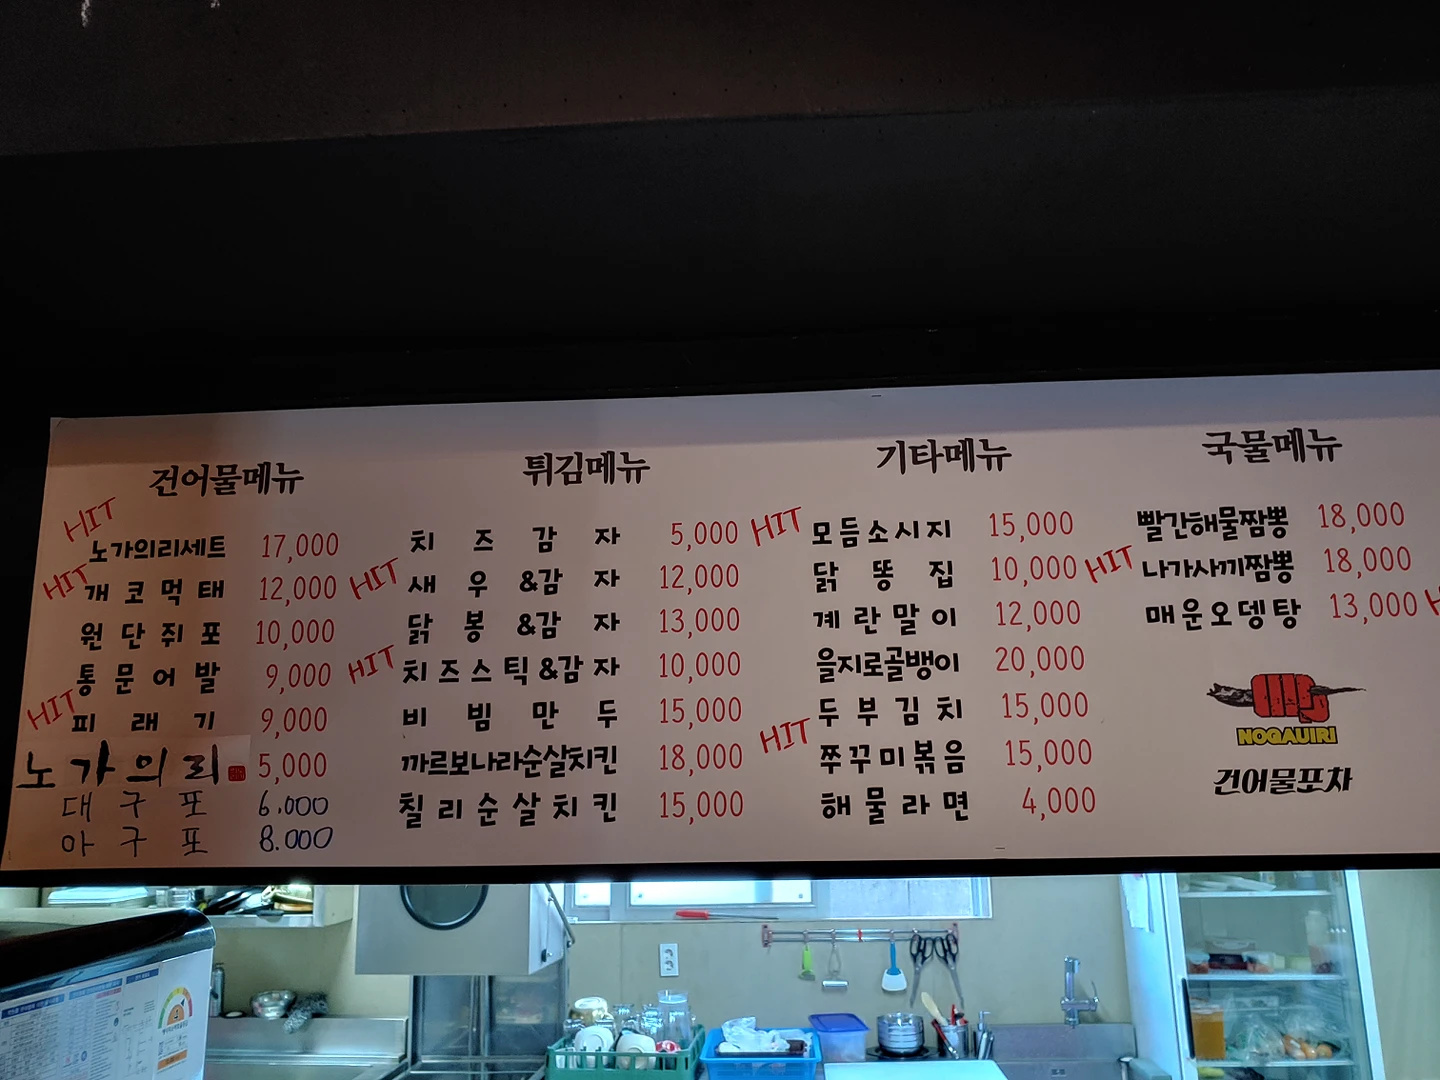 건어물메뉴
HIT
노가의리세트 17,000
HIT
개코먹태 12,000
원단쥐포 10,000
통문어발 9,000
HIT
피래기 9,000
노가의리 5,000
대구포 6.000
아구포 8.000
튀김메뉴
치즈감자 5,000
HIT
새우&감자 12,000
닭봉&감자 13,000
HIT
치즈스틱&감자 10,000
비빔만두 15,000
까르보나라순살치킨 18,000
칠리순살치킨 15,000
기타메뉴
HIT
모듬소시지 15,000
닭똥집 10,000
계란말이 12,000
을지로골뱅이 20,000
두부김치 15,000
HIT
쭈꾸미볶음 15,000
해물라면 4,000
국물메뉴
빨간해물짬뽕 18,000
HIT
나가사끼짬뽕 18,000
매운오뎅탕 13,000
NOGAUIRI
건어물포차